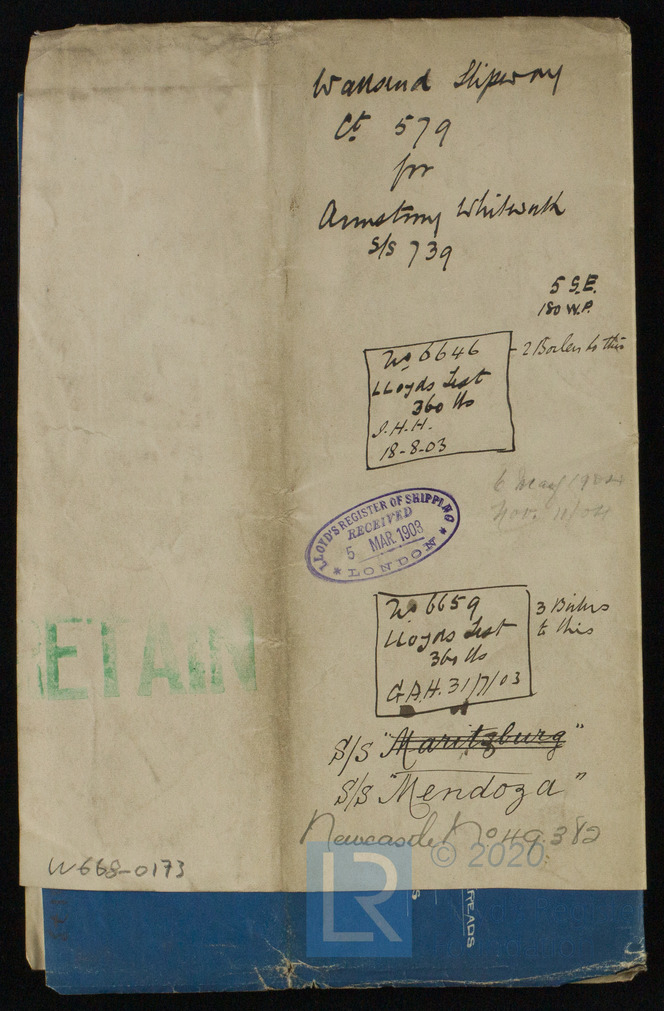 Wallsend Slipway
Ct 579
for
Armstrong Whitworth
S/S 739
5 S.E.
180 W.P.
No 6646
LLoyds Test
360 lbs
J.H.H.
18-8-03
2 Boilers to this
6 May 1904
Nov. 11/04
LLOYD'S REGISTER OF SHIPPING
RECEIVED
5 MAR. 1903
★ LONDON ★
No 6659
LLoyds Test
360 lbs
G.A.H. 31/7/03
3 Boilers
to this
RETAIN
S/S "Maritzburg"
S/S "Mendoza"
Newcastle No 49.382
W668-0173
© 2020
LR
READS